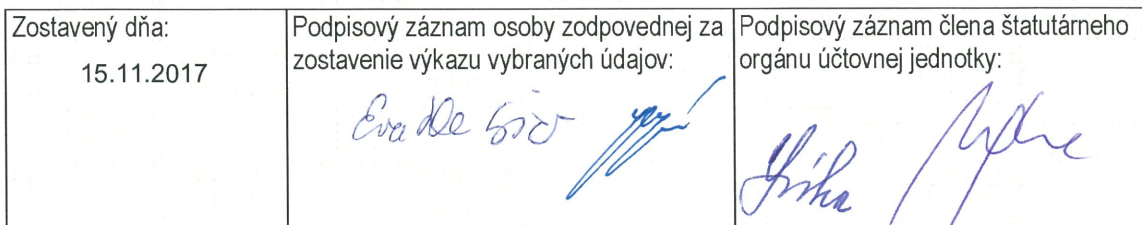 Zostavený dňa:
15.11.2017
Podpisový záznam osoby zodpovednej za
zostavenie výkazu vybraných údajov:
Podpisový záznam člena štatutárneho
orgánu účtovnej jednotky: